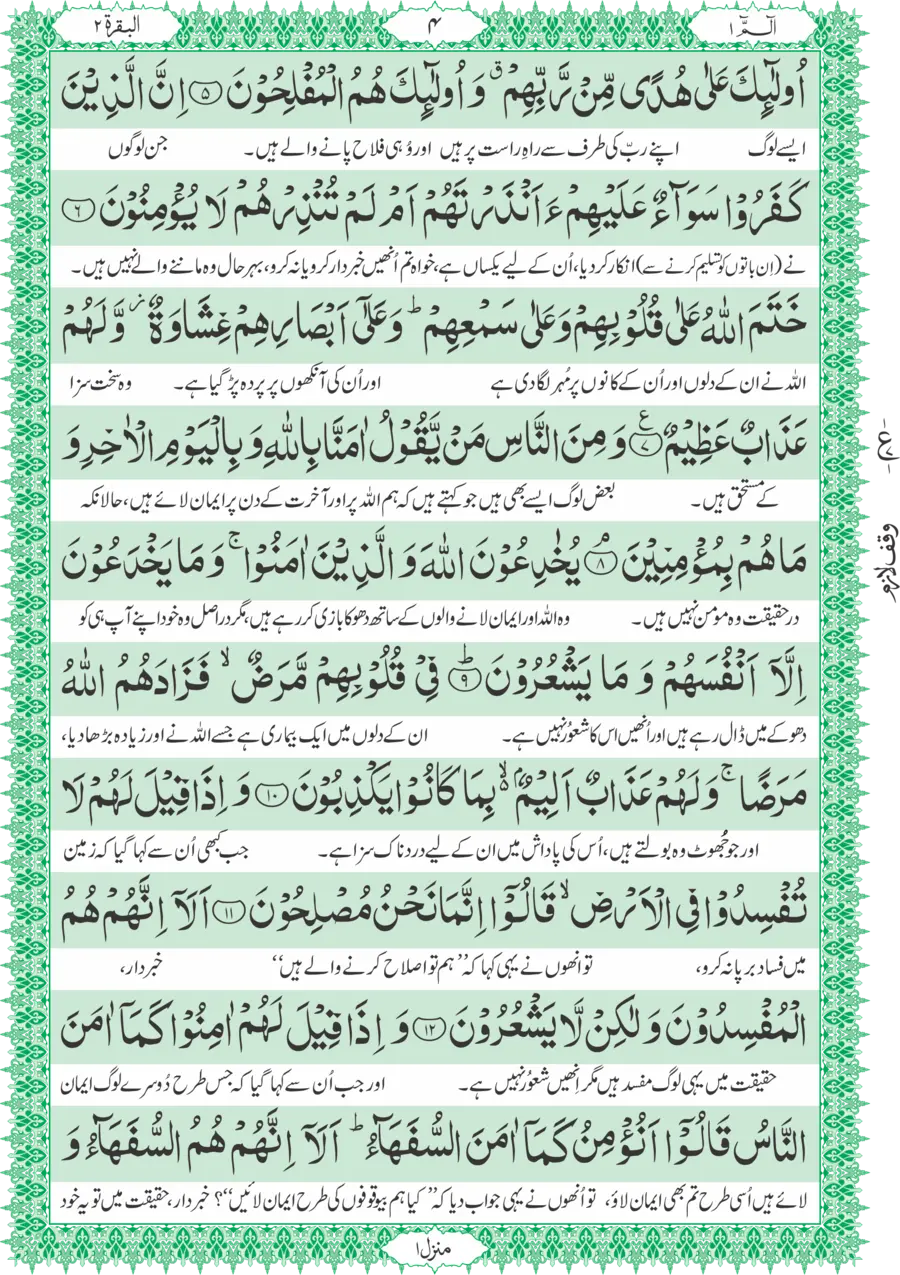 الٓـمّٓ ۱
۴
البقرۃ ۲
اُولٰٓئِكَ عَلٰى هُدًى مِّنْ رَّبِّهِمْ ۗ وَ اُولٰٓئِكَ هُمُ الْمُفْلِحُوْنَ ۝۵ اِنَّ الَّذِيْنَ
ایسے لوگ اپنے ربّ کی طرف سے راہِ راست پر ہیں اور وُہی فلاح پانے والے ہیں۔ جن لوگوں
كَفَرُوْا سَوَآءٌ عَلَيْهِمْ ءَاَنْذَرْتَهُمْ اَمْ لَمْ تُنْذِرْهُمْ لَا يُؤْمِنُوْنَ ۝۶
نے (اِن باتوں کو تسلیم کرنے سے) انکار کر دیا، اُن کے لیے یکساں ہے، خواہ تم اُنھیں خبردار کرو یا نہ کرو، بہر حال وہ ماننے والے نہیں ہیں۔
خَتَمَ اللّٰهُ عَلٰى قُلُوْبِهِمْ وَعَلٰى سَمْعِهِمْ ؕ وَعَلٰٓى اَبْصَارِهِمْ غِشَاوَةٌ ز وَّلَهُمْ
اللہ نے ان کے دلوں اور اُن کے کانوں پر مُہر لگا دی ہے اور اُن کی آنکھوں پر پردہ پڑ گیا ہے۔ وہ سخت سزا
عَذَابٌ عَظِيْمٌ ۝۷ ع وَ مِنَ النَّاسِ مَنْ يَّقُوْلُ اٰمَنَّا بِاللّٰهِ وَ بِالْيَوْمِ الْاٰخِرِ وَ
کے مستحق ہیں۔ بعض لوگ ایسے بھی ہیں جو کہتے ہیں کہ ہم اللہ پر اور آخرت کے دن پر ایمان لائے ہیں، حالانکہ
مَا هُمْ بِمُؤْمِنِيْنَ ۝۸ۘ يُخٰدِعُوْنَ اللّٰهَ وَ الَّذِيْنَ اٰمَنُوْا ۚ وَ مَا يَخْدَعُوْنَ
در حقیقت وہ مومن نہیں ہیں۔ وہ اللہ اور ایمان لانے والوں کے ساتھ دھوکا بازی کر رہے ہیں، مگر دراصل وہ خود اپنے آپ ہی کو
وقف لازم
اِلَّاۤ اَنْفُسَهُمْ وَ مَا يَشْعُرُوْنَ ۝۹ؕ فِيْ قُلُوْبِهِمْ مَّرَضٌ ۙ فَزَادَهُمُ اللّٰهُ
دھوکے میں ڈال رہے ہیں اور اُنھیں اس کا شعُور نہیں ہے۔ ان کے دلوں میں ایک بیماری ہے جسے اللہ نے اور زیادہ بڑھا دیا،
مَرَضًا ۚ وَ لَهُمْ عَذَابٌ اَلِيْمٌۢ ۙ۬ بِمَا كَانُوْا يَكْذِبُوْنَ ۝۱۰ وَ اِذَا قِيْلَ لَهُمْ لَا
اور جو جُھوٹ وہ بولتے ہیں، اُس کی پاداش میں ان کے لیے دردناک سزا ہے۔ جب کبھی اُن سے کہا گیا کہ زمین
تُفْسِدُوْا فِي الْاَرْضِ ۙ قَالُوْۤا اِنَّمَا نَحْنُ مُصْلِحُوْنَ ۝۱۱ اَلَاۤ اِنَّهُمْ هُمُ
میں فساد برپا نہ کرو، تو انھوں نے یہی کہا کہ ”ہم تو اصلاح کرنے والے ہیں“ خبردار،
الْمُفْسِدُوْنَ وَ لٰكِنْ لَّا يَشْعُرُوْنَ ۝۱۲ وَ اِذَا قِيْلَ لَهُمْ اٰمِنُوْا كَمَاۤ اٰمَنَ
حقیقت میں یہی لوگ مفسد ہیں مگر اِنھیں شعُور نہیں ہے۔ اور جب اُن سے کہا گیا کہ جس طرح دُوسرے لوگ ایمان
النَّاسُ قَالُوْۤا اَنُؤْمِنُ كَمَاۤ اٰمَنَ السُّفَهَآءُ ؕ اَلَاۤ اِنَّهُمْ هُمُ السُّفَهَآءُ وَ
لائے ہیں اُسی طرح تم بھی ایمان لاؤ، تو اُنھوں نے یہی جواب دیا کہ ”کیا ہم بیوقوفوں کی طرح ایمان لائیں“؟ خبردار، حقیقت میں تو یہ خود
منزل ۱